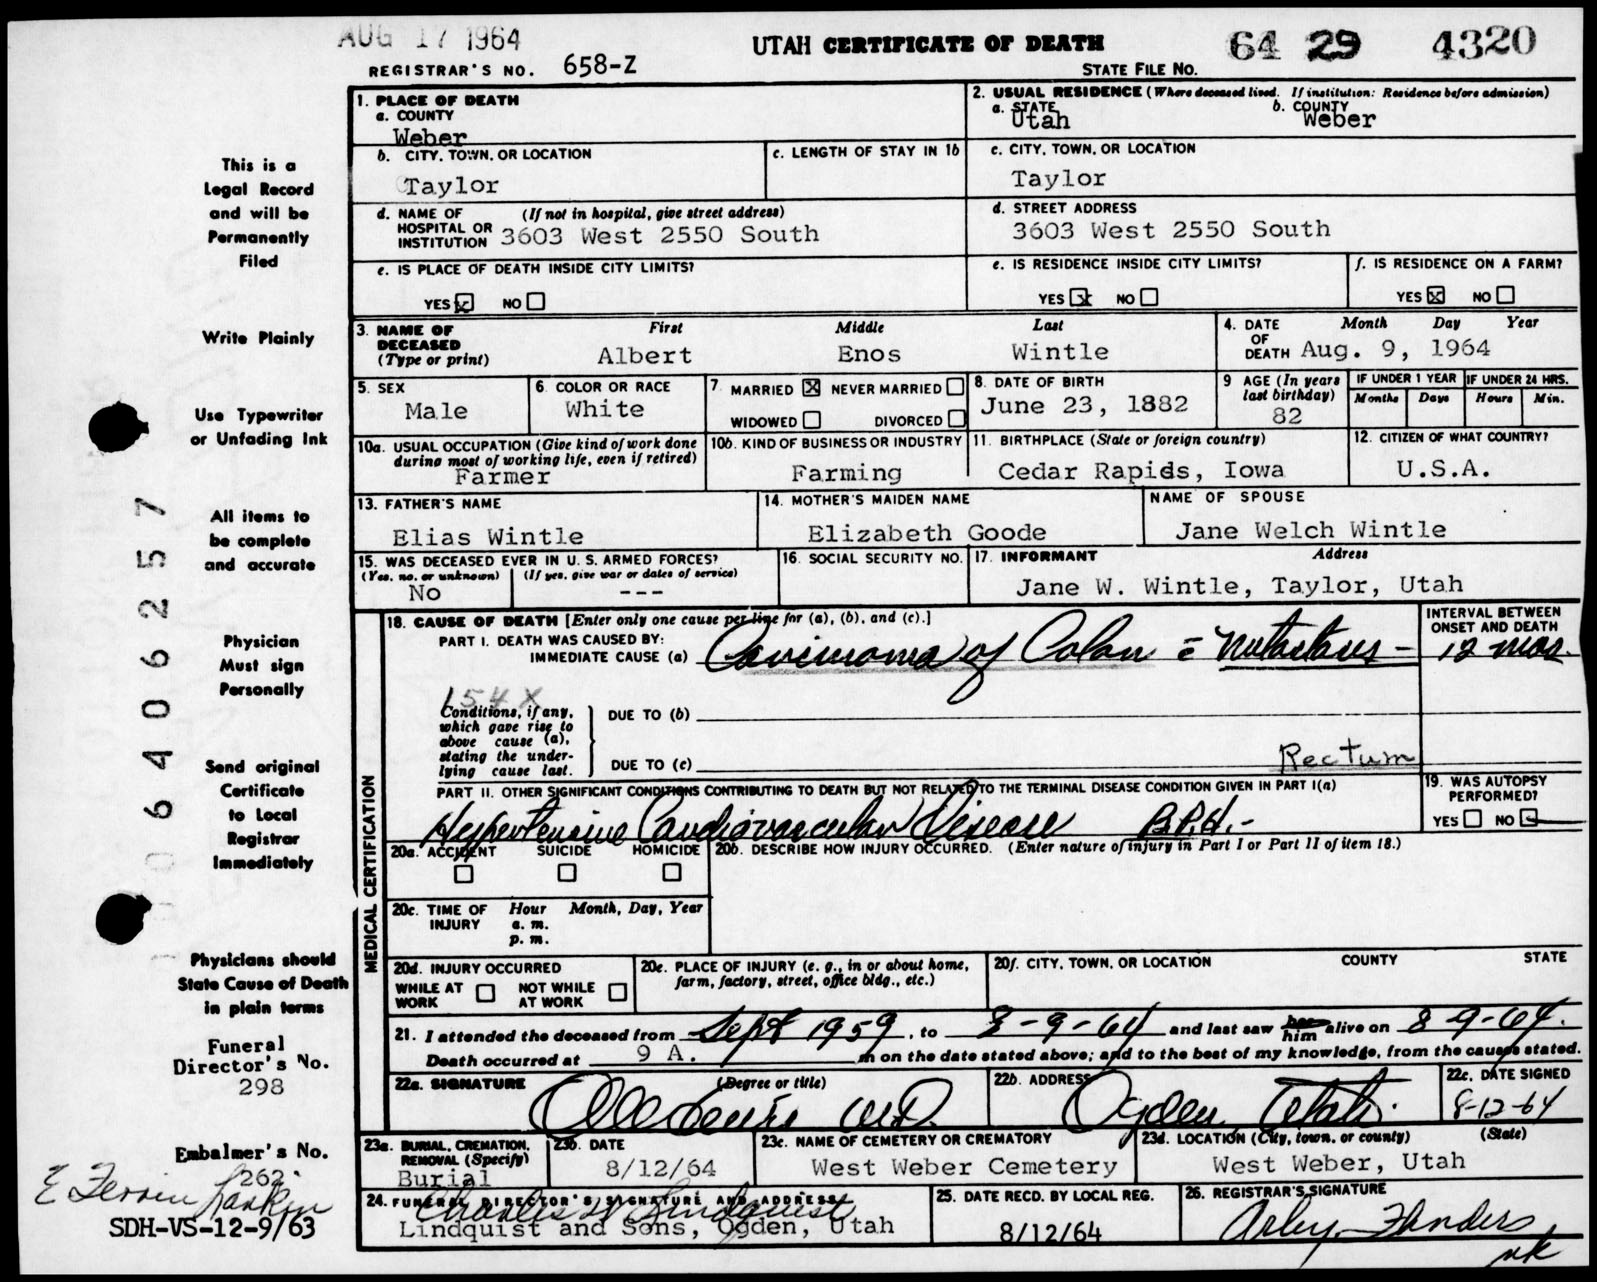 AUG 17 1964
UTAH CERTIFICATE OF DEATH
64 29 4320
REGISTRAR'S NO. 658-Z
STATE FILE NO.
1. PLACE OF DEATH
a. COUNTY
Weber
2. USUAL RESIDENCE (Where deceased lived. If institution: Residence before admission)
a. STATE b. COUNTY
Utah Weber
b. CITY, TOWN, OR LOCATION
Taylor
c. LENGTH OF STAY IN 1b
c. CITY, TOWN, OR LOCATION
Taylor
d. NAME OF (If not in hospital, give street address)
HOSPITAL OR
INSTITUTION 3603 West 2550 South
d. STREET ADDRESS
3603 West 2550 South
e. IS PLACE OF DEATH INSIDE CITY LIMITS?
YES ☒ NO ☐
e. IS RESIDENCE INSIDE CITY LIMITS?
YES ☒ NO ☐
f. IS RESIDENCE ON A FARM?
YES ☒ NO ☐
3. NAME OF First Middle Last
DECEASED
(Type or print) Albert Enos Wintle
4. DATE Month Day Year
OF
DEATH Aug. 9, 1964
5. SEX
Male
6. COLOR OR RACE
White
7. MARRIED ☒ NEVER MARRIED ☐
WIDOWED ☐ DIVORCED ☐
8. DATE OF BIRTH
June 23, 1882
9 AGE (In years
last birthday)
82
IF UNDER 1 YEAR IF UNDER 24 HRS.
Months Days Hours Min.
10a. USUAL OCCUPATION (Give kind of work done
during most of working life, even if retired)
Farmer
10b. KIND OF BUSINESS OR INDUSTRY
Farming
11. BIRTHPLACE (State or foreign country)
Cedar Rapids, Iowa
12. CITIZEN OF WHAT COUNTRY?
U.S.A.
13. FATHER'S NAME
Elias Wintle
14. MOTHER'S MAIDEN NAME
Elizabeth Goode
NAME OF SPOUSE
Jane Welch Wintle
15. WAS DECEASED EVER IN U. S. ARMED FORCES?
(Yes, no, or unknown) (If yes, give war or dates of service)
No ---
16. SOCIAL SECURITY NO.
17. INFORMANT Address
Jane W. Wintle, Taylor, Utah
MEDICAL CERTIFICATION
18. CAUSE OF DEATH [Enter only one cause per line for (a), (b), and (c).]
INTERVAL BETWEEN
ONSET AND DEATH
PART I. DEATH WAS CAUSED BY:
IMMEDIATE CAUSE (a) Carcinoma of Colon = metastases - 12 mos.
154X
Conditions, if any,
which gave rise to
above cause (a),
stating the under-
lying cause last.
DUE TO (b)
DUE TO (c) Rectum
PART II. OTHER SIGNIFICANT CONDITIONS CONTRIBUTING TO DEATH BUT NOT RELATED TO THE TERMINAL DISEASE CONDITION GIVEN IN PART I(a)
Hypertensive Cardiovascular Disease B.P.H.-
19. WAS AUTOPSY
PERFORMED?
YES ☐ NO ☒
20a. ACCIDENT SUICIDE HOMICIDE
☐ ☐ ☐
20b. DESCRIBE HOW INJURY OCCURRED. (Enter nature of injury in Part I or Part II of item 18.)
20c. TIME OF Hour Month, Day, Year
INJURY a. m.
p. m.
20d. INJURY OCCURRED
WHILE AT ☐ NOT WHILE ☐
WORK AT WORK
20e. PLACE OF INJURY (e. g., in or about home,
farm, factory, street, office bldg., etc.)
20f. CITY, TOWN, OR LOCATION COUNTY STATE
21. I attended the deceased from Sept 1959, to 8-9-64 and last saw her him alive on 8-9-64.
Death occurred at 9 A. m on the date stated above; and to the best of my knowledge, from the causes stated.
22a. SIGNATURE (Degree or title)
M.D.
22b. ADDRESS
Ogden Utah.
22c. DATE SIGNED
8-12-64
23a. BURIAL, CREMATION,
REMOVAL (Specify)
Burial
23b. DATE
8/12/64
23c. NAME OF CEMETERY OR CREMATORY
West Weber Cemetery
23d. LOCATION (City, town, or county) (State)
West Weber, Utah
24. FUNERAL DIRECTOR'S SIGNATURE AND ADDRESS
Charles W Lindquist
Lindquist and Sons, Ogden, Utah
25. DATE RECD. BY LOCAL REG.
8/12/64
26. REGISTRAR'S SIGNATURE
Arley Flinders
nk
This is a
Legal Record
and will be
Permanently
Filed
Write Plainly
Use Typewriter
or Unfading Ink
All items to
be complete
and accurate
Physician
Must sign
Personally
Send original
Certificate
to Local
Registrar
Immediately
Physicians should
State Cause of Death
in plain terms
Funeral
Director's No.
298
Embalmer's No.
262
E Ferrin Larkin
SDH-VS-12-9/63
006406257